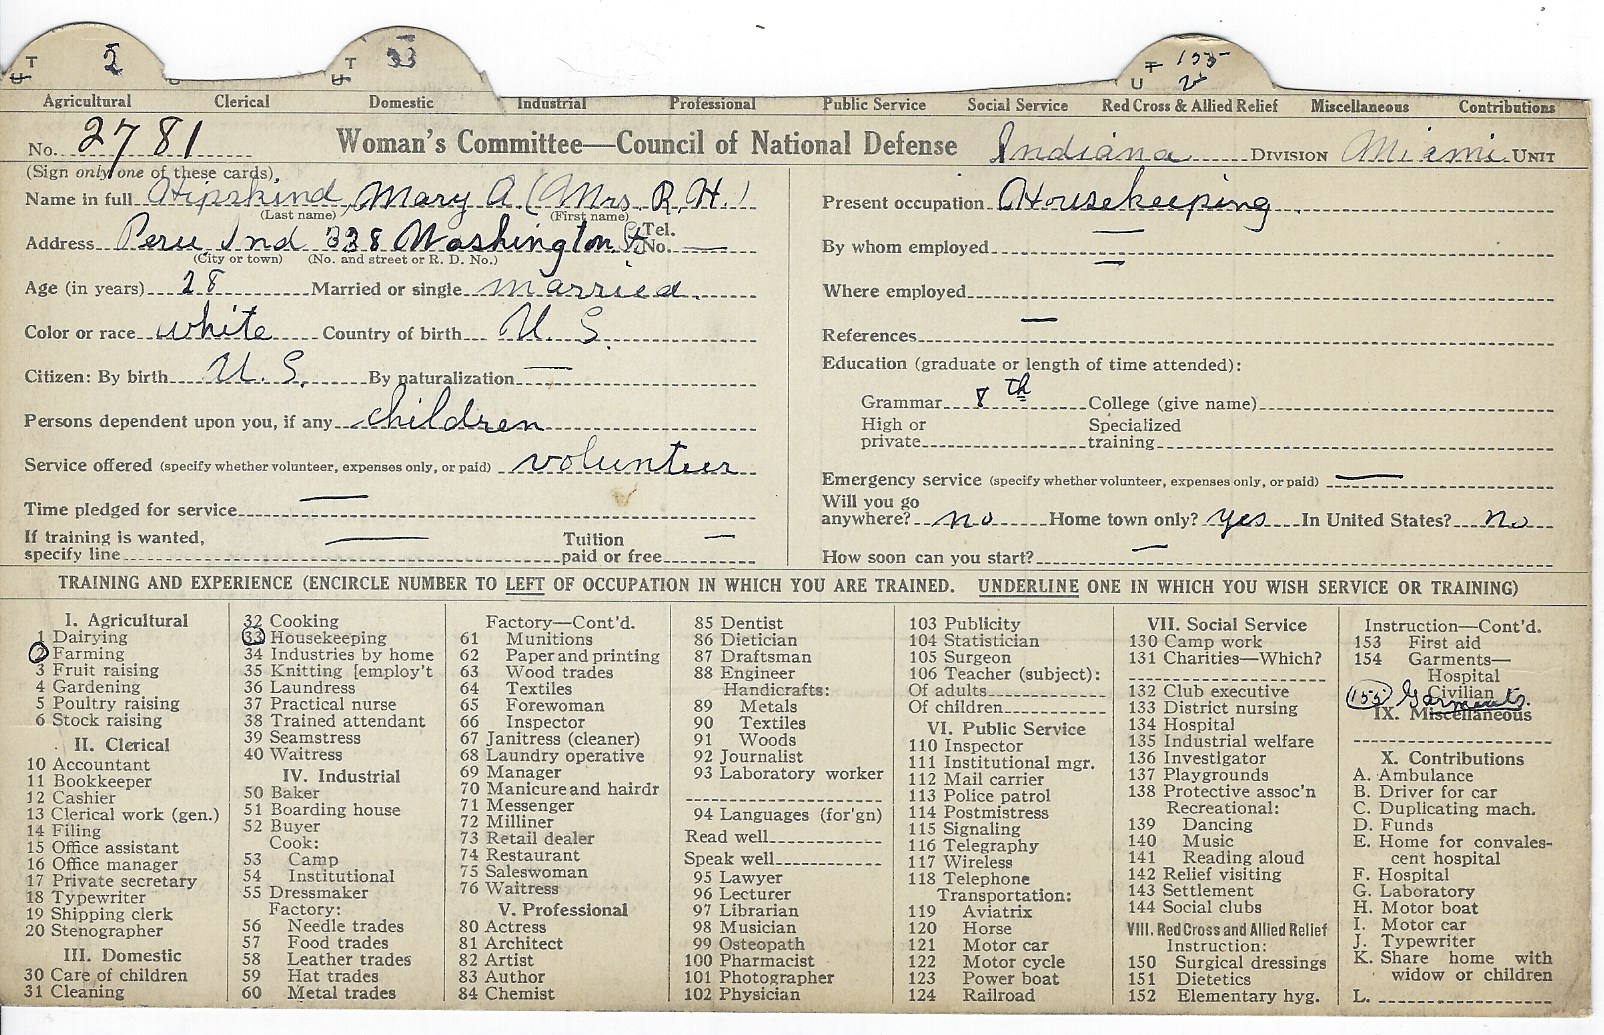 T 2
U T
T 33
U T
T 155
U 2
Agricultural Clerical Domestic Industrial Professional Public Service Social Service Red Cross & Allied Relief Miscellaneous Contributions
No. 2781 Woman's Committee—Council of National Defense Indiana DIVISION Miami UNIT
(Sign only one of these cards)
Name in full Hipskind, Mary A. (Mrs. R. H.)
(Last name) (First name)
Address Peru Ind 328 Washington St. Tel. No. —
(City or town) (No. and street or R. D. No.)
Age (in years) 28 Married or single married.
Color or race white Country of birth U. S.
Citizen: By birth U. S. By naturalization —
Persons dependent upon you, if any children
Service offered (specify whether volunteer, expenses only, or paid) volunteer
Time pledged for service —
If training is wanted, specify line — Tuition paid or free —
Present occupation Housekeeping
By whom employed —
Where employed —
References —
Education (graduate or length of time attended):
Grammar 8th College (give name)
High or private Specialized training
Emergency service (specify whether volunteer, expenses only, or paid) —
Will you go anywhere? no Home town only? yes In United States? no
How soon can you start? —
TRAINING AND EXPERIENCE (ENCIRCLE NUMBER TO LEFT OF OCCUPATION IN WHICH YOU ARE TRAINED. UNDERLINE ONE IN WHICH YOU WISH SERVICE OR TRAINING)
I. Agricultural
1 Dairying
2 Farming
3 Fruit raising
4 Gardening
5 Poultry raising
6 Stock raising
II. Clerical
10 Accountant
11 Bookkeeper
12 Cashier
13 Clerical work (gen.)
14 Filing
15 Office assistant
16 Office manager
17 Private secretary
18 Typewriter
19 Shipping clerk
20 Stenographer
III. Domestic
30 Care of children
31 Cleaning
32 Cooking
33 Housekeeping
34 Industries by home
35 Knitting [employ't
36 Laundress
37 Practical nurse
38 Trained attendant
39 Seamstress
40 Waitress
IV. Industrial
50 Baker
51 Boarding house
52 Buyer
Cook:
53 Camp
54 Institutional
55 Dressmaker
Factory:
56 Needle trades
57 Food trades
58 Leather trades
59 Hat trades
60 Metal trades
Factory—Cont'd.
61 Munitions
62 Paper and printing
63 Wood trades
64 Textiles
65 Forewoman
66 Inspector
67 Janitress (cleaner)
68 Laundry operative
69 Manager
70 Manicure and hairdr
71 Messenger
72 Milliner
73 Retail dealer
74 Restaurant
75 Saleswoman
76 Waitress
V. Professional
80 Actress
81 Architect
82 Artist
83 Author
84 Chemist
85 Dentist
86 Dietician
87 Draftsman
88 Engineer
Handicrafts:
89 Metals
90 Textiles
91 Woods
92 Journalist
93 Laboratory worker
94 Languages (for'gn)
Read well
Speak well
95 Lawyer
96 Lecturer
97 Librarian
98 Musician
99 Osteopath
100 Pharmacist
101 Photographer
102 Physician
103 Publicity
104 Statistician
105 Surgeon
106 Teacher (subject):
Of adults
Of children
VI. Public Service
110 Inspector
111 Institutional mgr.
112 Mail carrier
113 Police patrol
114 Postmistress
115 Signaling
116 Telegraphy
117 Wireless
118 Telephone
Transportation:
119 Aviatrix
120 Horse
121 Motor car
122 Motor cycle
123 Power boat
124 Railroad
VII. Social Service
130 Camp work
131 Charities—Which?
132 Club executive
133 District nursing
134 Hospital
135 Industrial welfare
136 Investigator
137 Playgrounds
138 Protective assoc'n
Recreational:
139 Dancing
140 Music
141 Reading aloud
142 Relief visiting
143 Settlement
144 Social clubs
VIII. Red Cross and Allied Relief
Instruction:
150 Surgical dressings
151 Dietetics
152 Elementary hyg.
Instruction—Cont'd.
153 First aid
154 Garments—
Hospital
Civilian
155 Garments.
IX. Miscellaneous
X. Contributions
A. Ambulance
B. Driver for car
C. Duplicating mach.
D. Funds
E. Home for convales-
cent hospital
F. Hospital
G. Laboratory
H. Motor boat
I. Motor car
J. Typewriter
K. Share home with
widow or children
L.